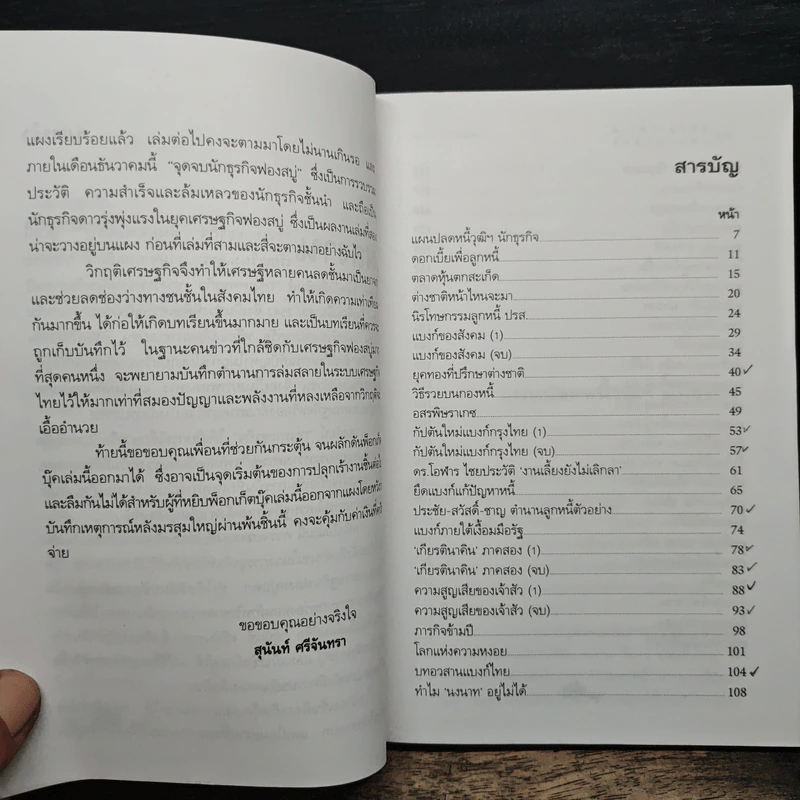 แผงเรียบร้อยแล้ว เล่มต่อไปคงจะตามมาโดยไม่นานเกินรอ และ
ภายในเดือนธันวาคมนี้ “จุดจบนักธุรกิจฟองสบู่” ซึ่งเป็นการรวบรวม
ประวัติ ความสำเร็จและล้มเหลวของนักธุรกิจชั้นนำ และถือเป็น
นักธุรกิจดาวรุ่งพุ่งแรงในยุคเศรษฐกิจฟองสบู่ ซึ่งเป็นผลงานเล่มที่สอง
น่าจะวางอยู่บนแผง ก่อนที่เล่มที่สามและสี่จะตามมาอย่างฉับไว
วิกฤติเศรษฐกิจจึงทำให้เศรษฐีหลายคนลดชั้นมาเป็นยาจก
และช่วยลดช่องว่างทางชนชั้นในสังคมไทย ทำให้เกิดความเท่าเทียม
กันมากขึ้น ได้ก่อให้เกิดบทเรียนขึ้นมากมาย และเป็นบทเรียนที่ควรจะ
ถูกเก็บบันทึกไว้ ในฐานะคนข่าวที่ใกล้ชิดกับเศรษฐกิจฟองสบู่มาก
ที่สุดคนหนึ่ง จะพยายามบันทึกตำนานการล่มสลายในระบบเศรษฐกิจ
ไทยไว้ให้มากเท่าที่สมองปัญญาและพลังงานที่หลงเหลือจากวิกฤติจะ
เอื้ออำนวย
ท้ายนี้ขอขอบคุณเพื่อนที่ช่วยกันกระตุ้น จนผลักดันพ็อกเก็ต
บุ๊คเล่มนี้ออกมาได้ ซึ่งอาจเป็นจุดเริ่มต้นของการปลุกเร้างานชิ้นต่อไป
และลืมกันไม่ได้สำหรับผู้ที่หยิบพ็อกเก็ตบุ๊คเล่มนี้ออกจากแผงโดยหวัง
บันทึกเหตุการณ์หลังมรสุมใหญ่ผ่านพ้นชิ้นนี้ คงจะคุ้มกับค่าเงินที่
จ่าย
ขอขอบคุณอย่างจริงใจ
สุนันท์ ศรีจันทรา
สารบัญ
หน้า
แผนปลดหนี้วุฒิฯ นักธุรกิจ 7
ดอกเบี้ยเพื่อลูกหนี้ 11
ตลาดหุ้นตกสะเก็ด 15
ต่างชาติหน้าไหนจะมา 20
นิรโทษกรรมลูกหนี้ ปรส. 24
แบงก์ของสังคม (1) 29
แบงก์ของสังคม (จบ) 34
ยุคทองที่ปรึกษาต่างชาติ 40 ✓
วิธีรวยบนกองหนี้ 45
อสรพิษราเกซ 49
กัปตันใหม่แบงก์กรุงไทย (1) 53 ✓
กัปตันใหม่แบงก์กรุงไทย (จบ) 57 ✓
ดร.โอฬาร ไชยประวัติ ‘งานเลี้ยงยังไม่เลิกลา’ 61
ยึดแบงก์แก้ปัญหาหนี้ 65
ประชัย-สวัสดิ์-ชาญ ตำนานลูกหนี้ตัวอย่าง 70 ✓
แบงก์ภายใต้เงื้อมมือรัฐ 74
‘เกียรตินาคิน’ ภาคสอง (1) 78 ✓
‘เกียรตินาคิน’ ภาคสอง (จบ) 83 ✓
ความสูญเสียของเจ้าสัว (1) 88 ✓
ความสูญเสียของเจ้าสัว (จบ) 93 ✓
ภารกิจข้ามปี 98
โลกแห่งความหงอย 101
บทอวสานแบงก์ไทย 104 ✓
ทำไม ‘นงนาท’ อยู่ไม่ได้ 108